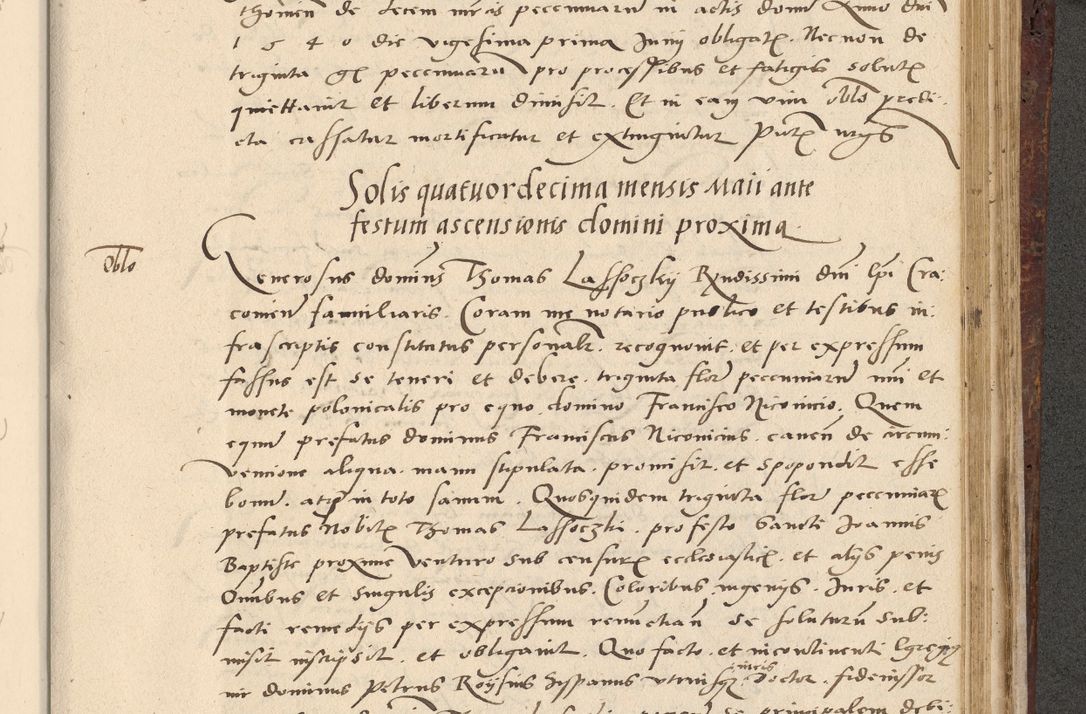 thomen de decem mrcis pecccuniarum in actis domi Anno dni
1540 die vigesima prima Junii obligatx. Necnon de
triginta gx peccuniarum pro processibus et fatigis solutx
quiettavit et liberum dimisit. Et in eam vim oblo predi
cta cassatur mortificatur et extinguitur Putx
Solis quatuordecima mensis Maii ante
festum ascensionis domini proxima
Oblo
Generosus dominus Thomas Lassoczkij Rndissimi dni Epi Cra
comien familiaris. Coram me notario publico et testibus in
frascriptis constitutus personalr. recognovit. et per expressum
fassus est se teneri et debere. triginta flor peccuniarum nui et
monete polonicalis pro equo domino Francisco Niconicio. Quem
equm prefatus dominus Franciscus Niconicius. caven de circum
ventione aliqua. manu stipulata. promisit. et spopondit esse
bonum. atqz in toto sanum. Quosquidem triginta flor peccuniarx
prefatus Nobilx Thomas Lassoczki. pro festo Sancti Joannis
Baptiste proxime venturo sub censurx ecclesiasticx. et alijs penis
Omnibus et singulis exceptionibus. Coloribus ingenijs. Juris. et
facti remedijs per expressum renuctian se soluturum sub
misit inscripsit. et obligavit. Quo facto. et incontinenti Egregij
vir dominus Petrus Roijsius Hispanus utriusqz iuris Doctor. fideiussor
principalem debi